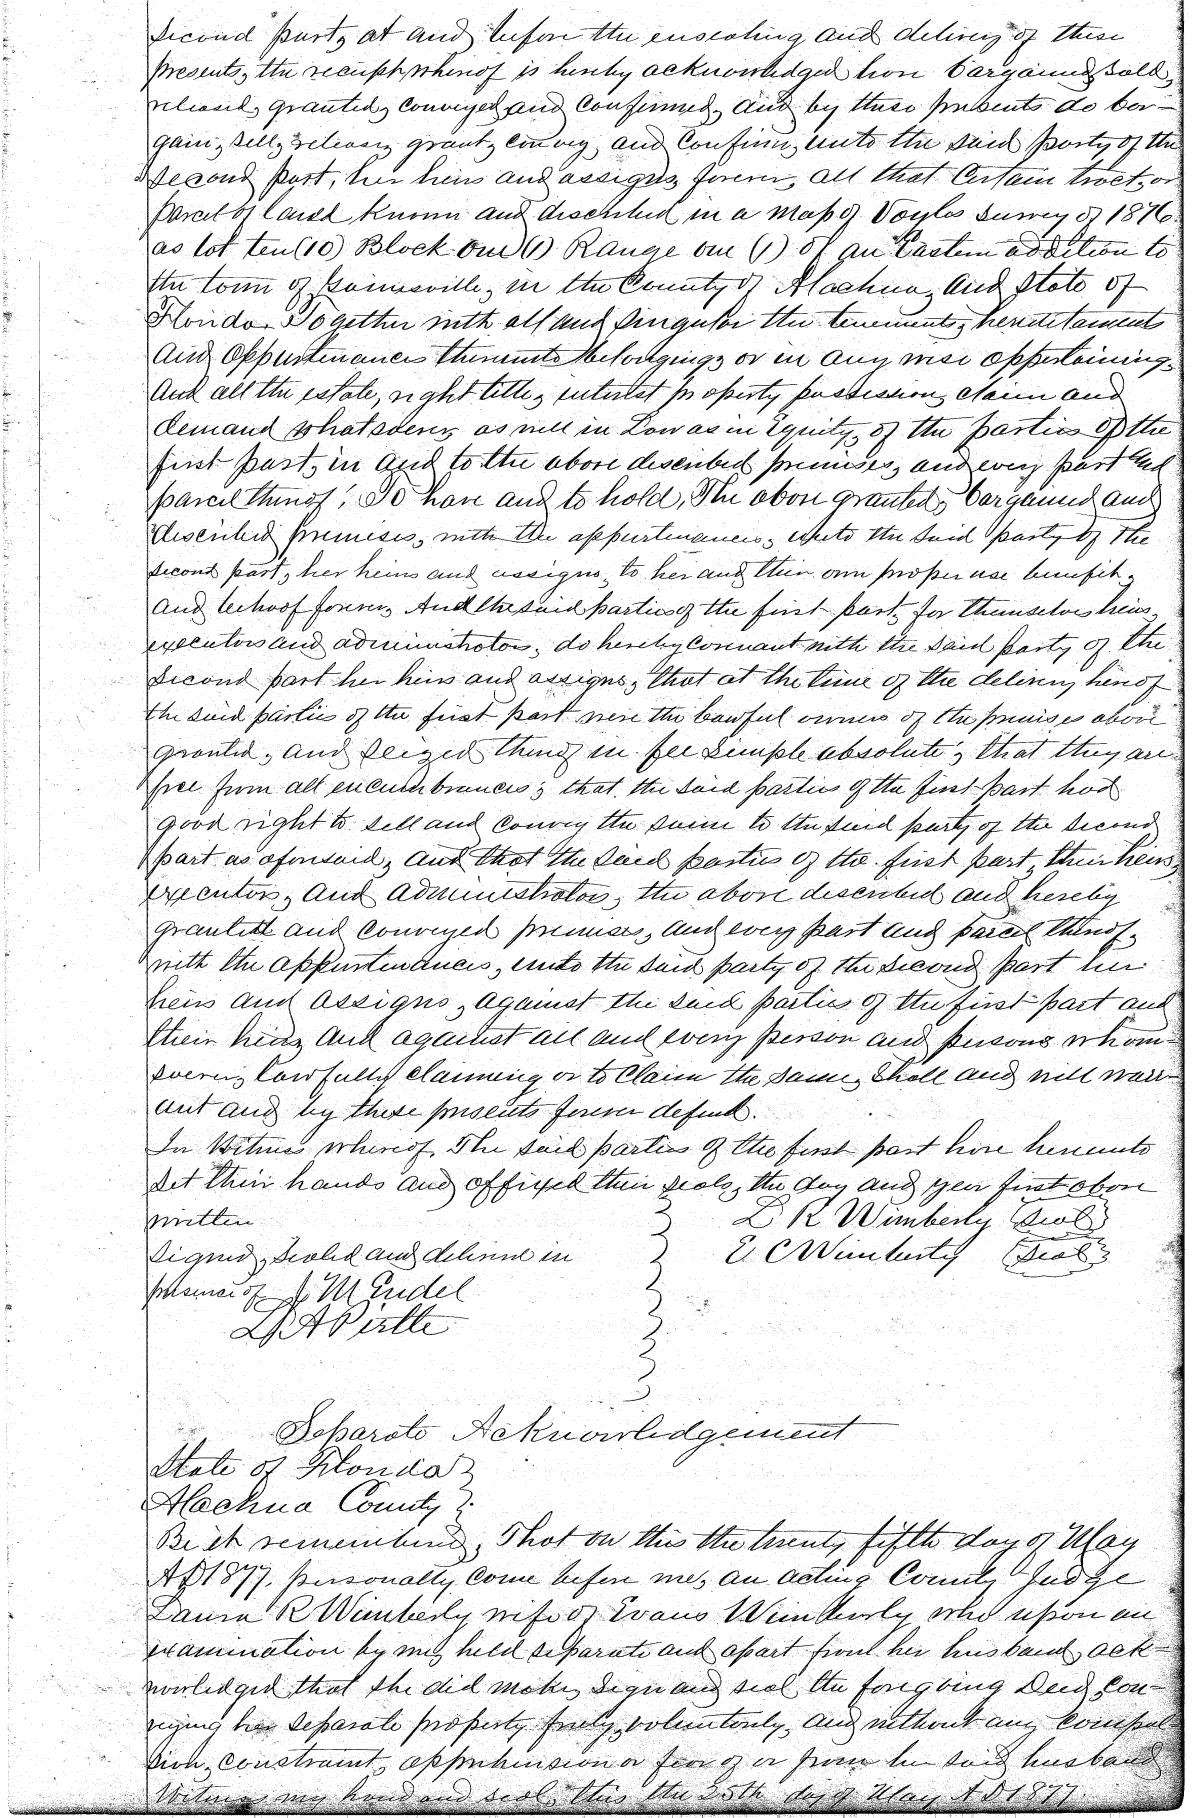 second part, at and before the ensealing and delivery of these
presents, the receipt whereof is hereby acknowledged have bargained, sold,
released, granted, conveyed and confirmed, and by these presents do bar-
gain, sell, release, grant, convey, and confirm, unto the said party of the
second part, her heirs and assigns, forever, all that certain tract, or
parcel of land known and described in a map of Voyles survey of 1876
as lot ten (10) Block one (1) Range one (1) of an Eastern addition to
the town of Gainesville, in the County of Alachua, and State of
Florida. Together with all and singular the tenements, hereditaments
and appurtenances thereunto belonging, or in any wise appertaining.
And all the estate, right title, interest property possession, claim and
demand whatsoever, as well in Law as in Equity, of the parties of the
first part, in and to the above described premises, and every part and
parcel thereof: To have and to hold, The above granted, bargained and
described premises, with the appurtenances, unto the said party of the
second part, her heirs and assigns, to her and their own proper use benefit,
and behoof forever, And the said parties of the first part, for themselves heirs,
executors and administrators, do hereby covenant with the said party of the
second part her heirs and assigns, that at the time of the delivery hereof
the said parties of the first part were the lawful owners of the premises above
granted, and seized thereof in fee simple absolute; that they are
free from all encumbrances; that the said parties of the first part had
good right to sell and convey the same to the said party of the second
part as aforesaid, and that the said parties of the first part, their heirs,
executors, and administrators, the above described and hereby
granted and conveyed premises, and every part and parcel thereof,
with the appurtenances, unto the said party of the second part her
heirs and assigns, against the said parties of the first part and
their heirs, and against all and every person and persons whom-
soever, lawfully claiming or to claim the same, shall and will warr-
ant and by these presents forever defend.
In Witness whereof, The said parties of the first part have hereunto
set their hands and affixed their seals, the day and year first above
written L R Wimberly (Seal)
Signed, Sealed and delivered in E C Wimberly (Seal)
presence of M Endel
L A Pirtle
Separate Acknowledgement
State of Florida
Alachua County
Be it remembered, That on this the twenty fifth day of May
AD 1877. personally come before me, an acting County Judge
Laura R Wimberly wife of Evans Wimberly who upon an
examination by me, held separate and apart from her husband, ack-
nowledged that she did make, sign and seal the foregoing Deed, con-
veying her separate property freely, voluntarily, and without any compul
sion, constraint, apprehension or fear of or from her said husband
Witness my hand and seal, this the 25th day of May AD 1877.